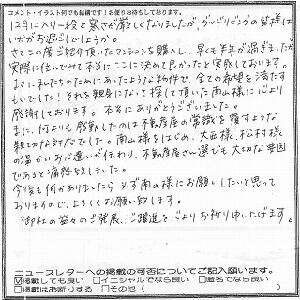 コメント・イラスト何でも結構です!お便りお待ちしております。
12月に入り一段と寒さが厳しくなりましたが、グッドリビングの皆様は
いかがお過ごしでしょうか。
さてこの度ご紹介頂いたマンションを購入し、早くも半年が過ぎました。
実際に住んでみて本当にここに決めて良かったと実感しております。
まさに私たちのためにあったような物件で、全ての希望を満たす
ものでした!それを親身になって探して頂いた南山様に心より
感謝しております。本当にありがとうございました。
また、何よりも感動したのは不動産屋の常識を覆すような
親切な対応でした。南山様をはじめ、大西様、松村様
の温かいお心遣いが伝わり、不動産屋さん選びも大切な要因
であると痛感致しました。
今後も何かありましたら必ず南山様にお願いしたいと思って
おりますので、よろしくお願い致します。
御社の益々のご発展、ご躍進を心よりお祈り申し上げます。
ニュースレターへの掲載の可否についてご記入願います。
☑掲載しても良い □イニシャルでなら良い □匿名でなら良い
□掲載はお断りする □その他( )